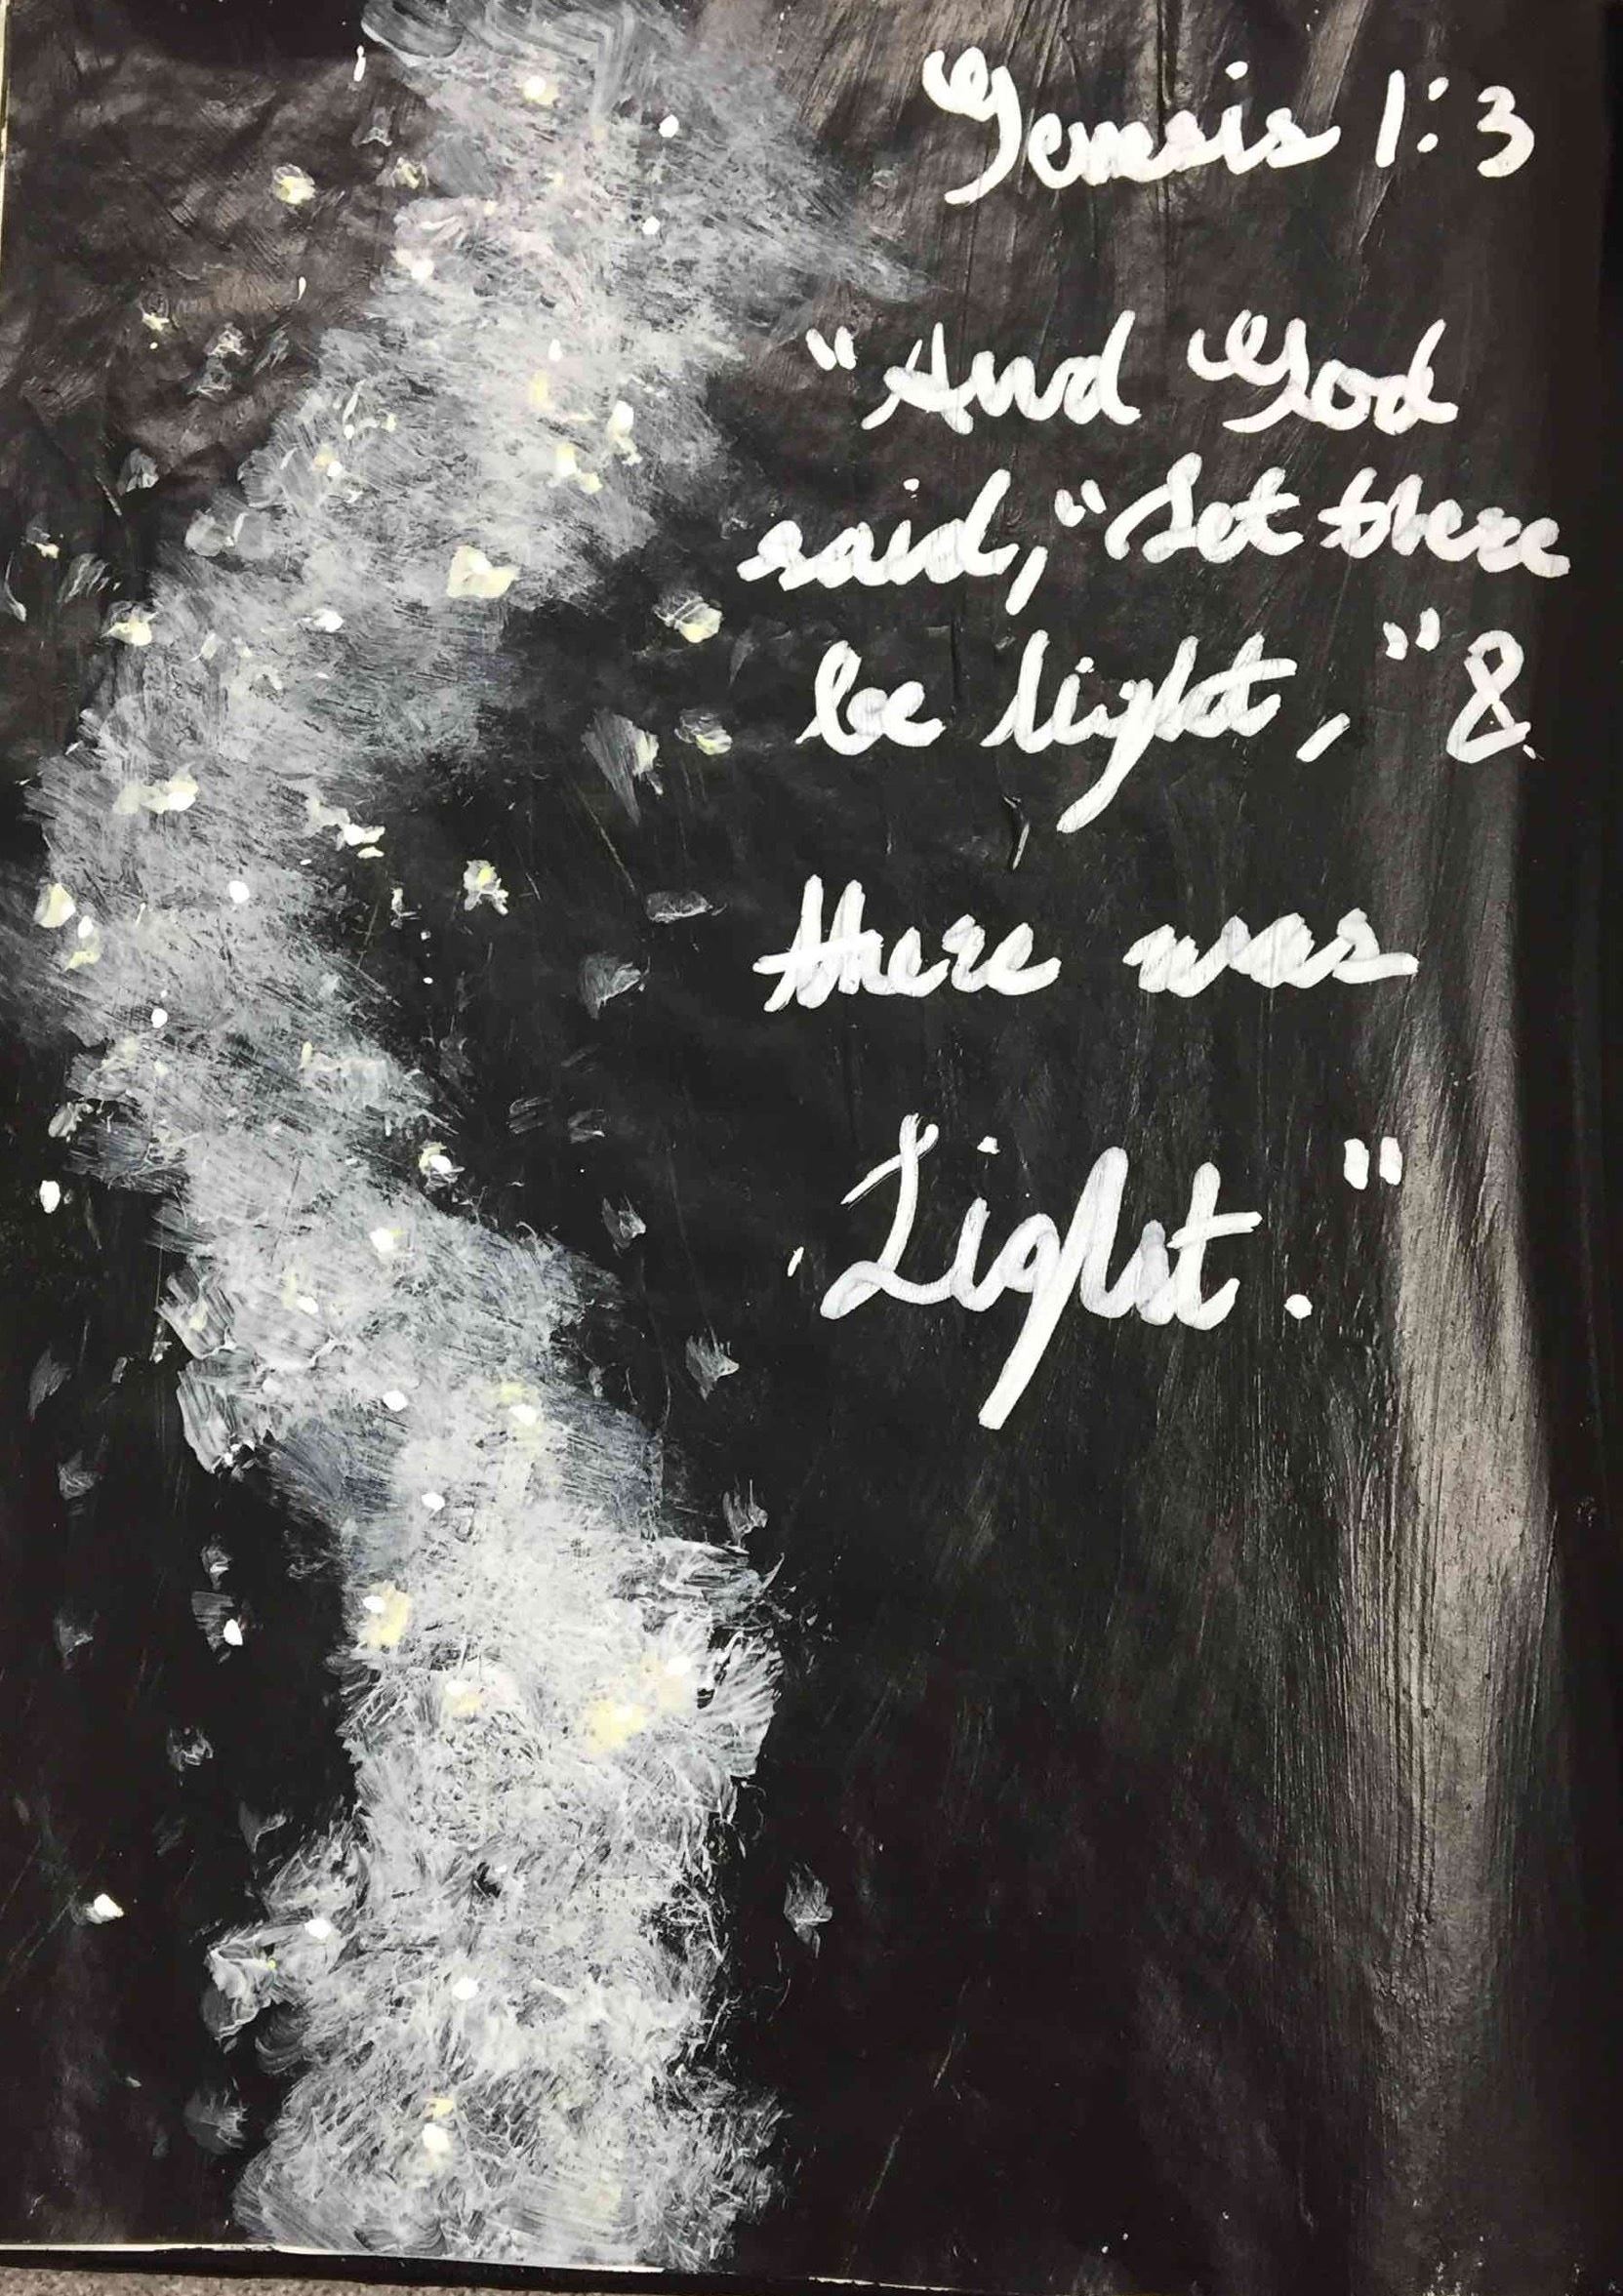 Genesis 1:3
"And God
said, "Let there
be light," &
there was
Light."